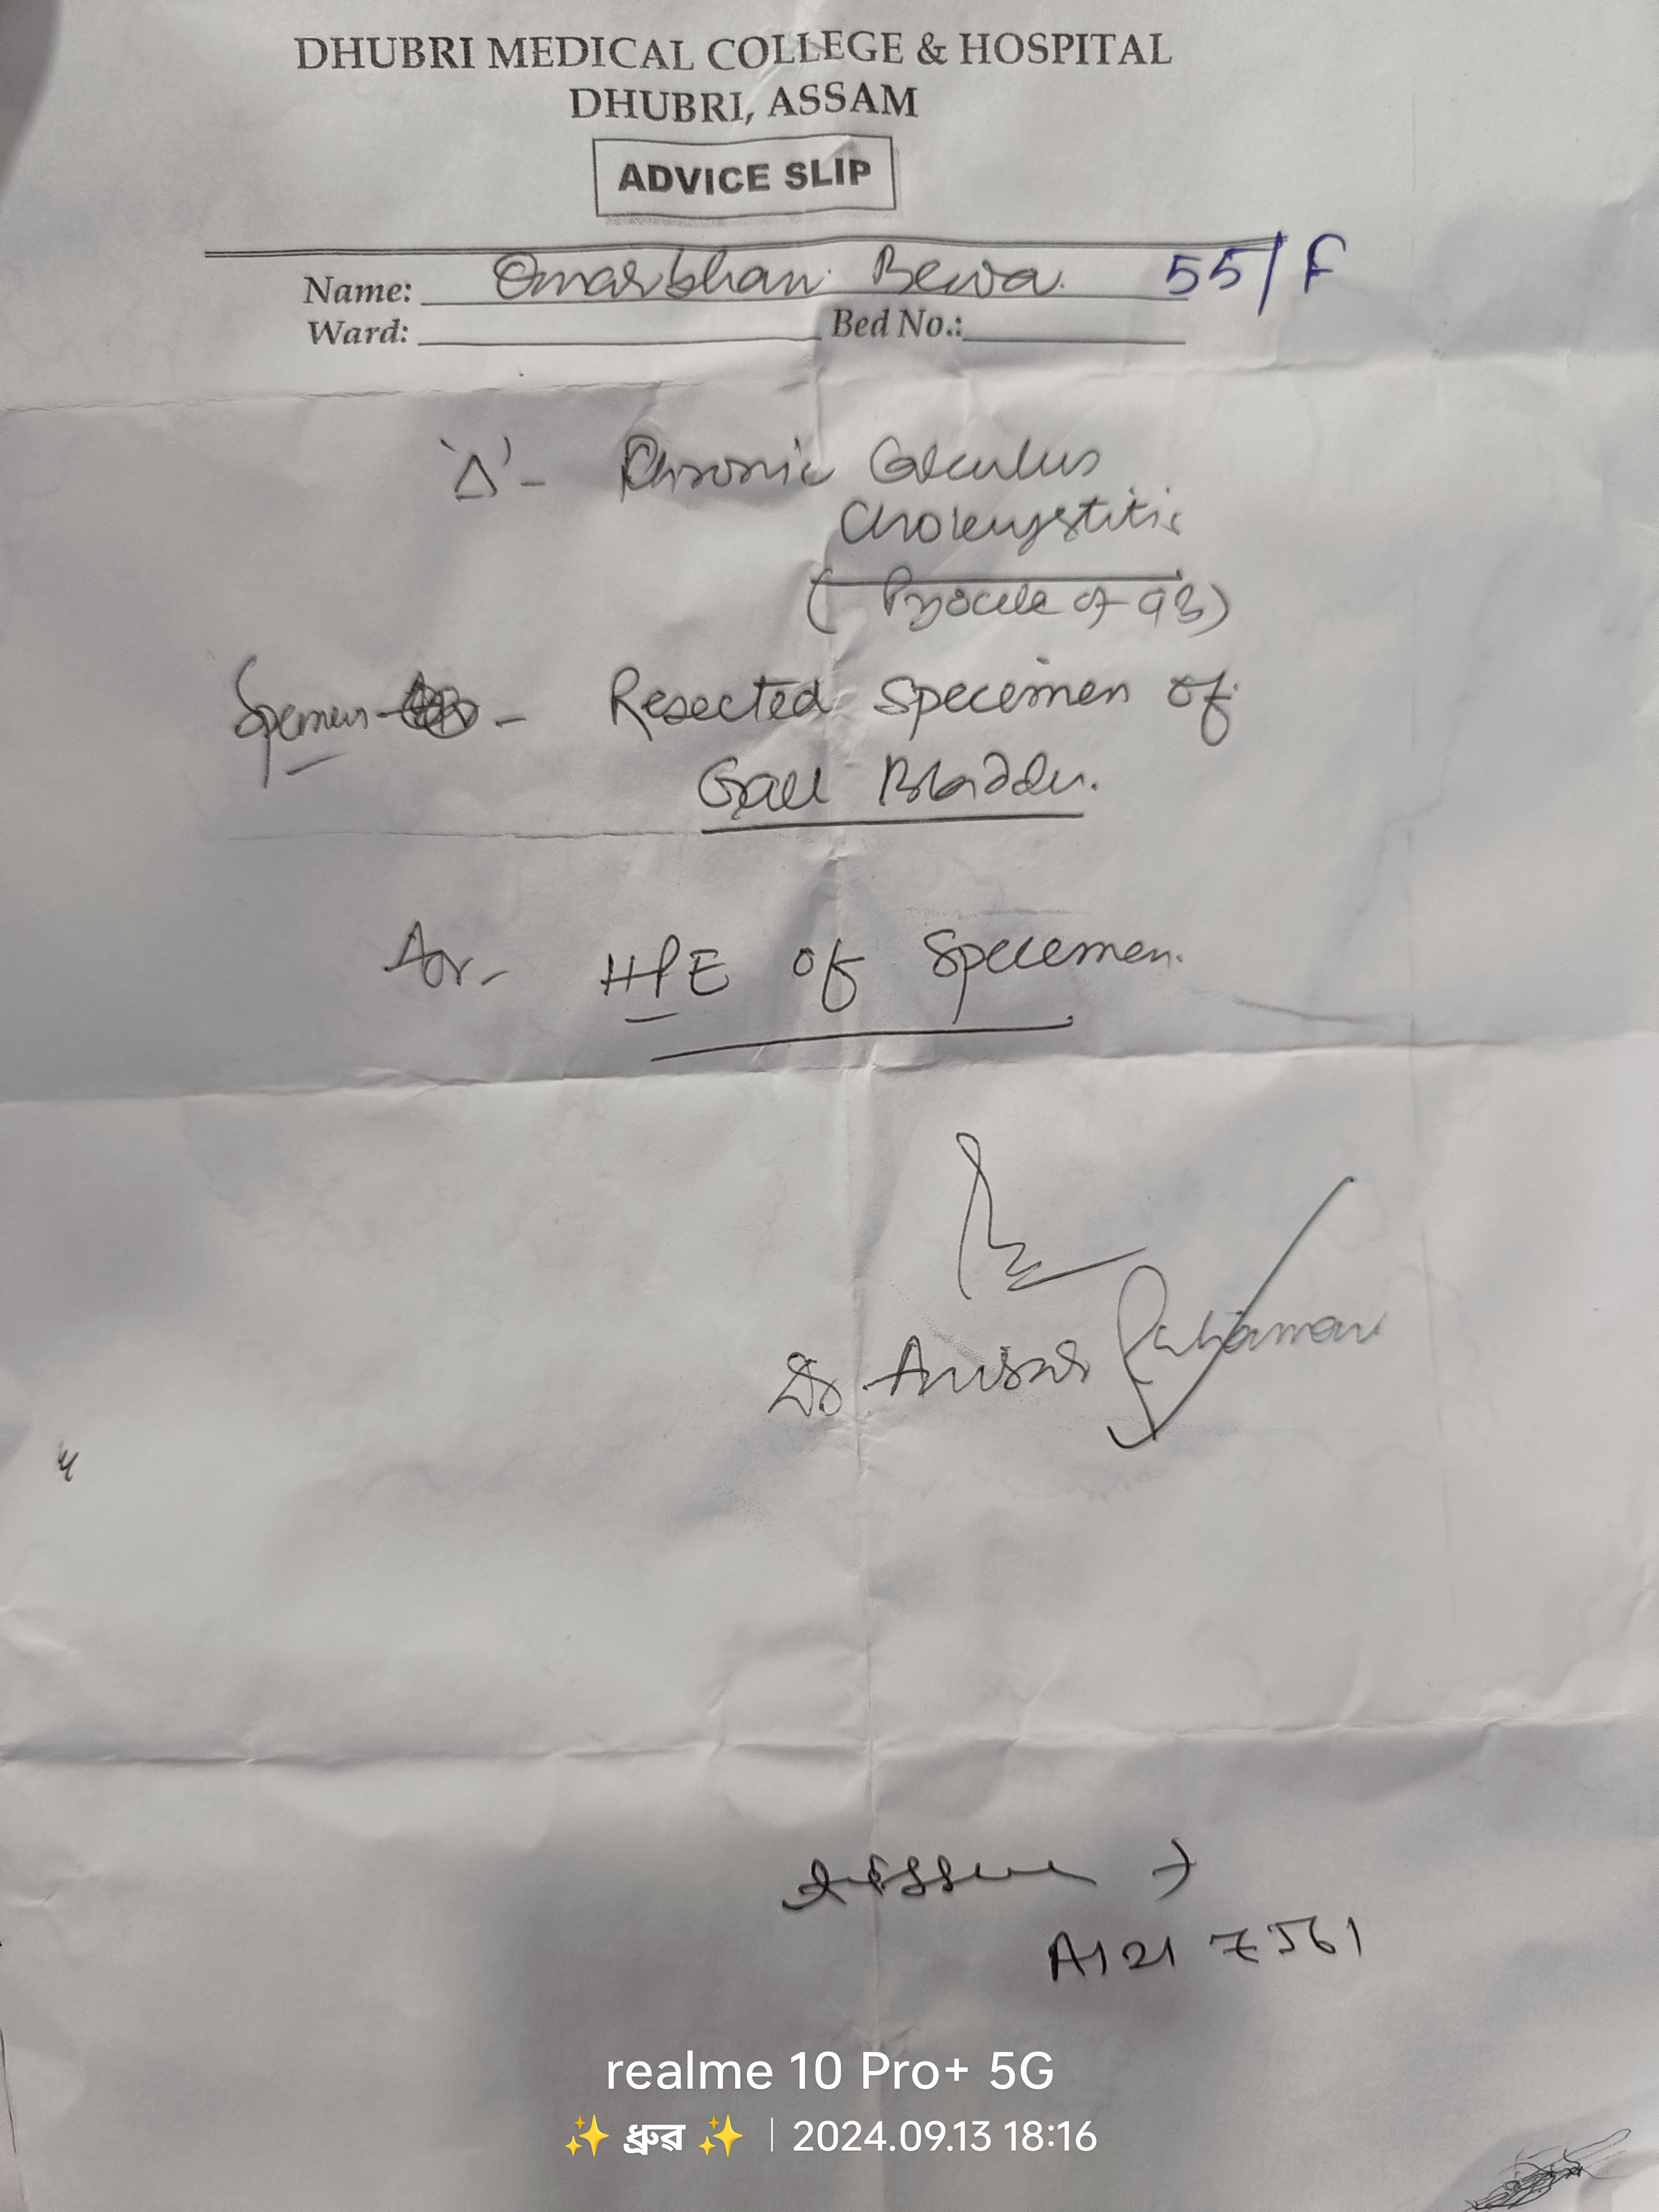 DHUBRI MEDICAL COLLEGE & HOSPITAL
DHUBRI, ASSAM
ADVICE SLIP
Name: Omarbhan Bewa. 55/F
Ward: Bed No.:
'Δ' - Chronic Calculus
Cholecystitis
(Pyocele of GB)
Specimen - Resected Specemen of
Gall Bladder.
HPE of Specemen.
Dr Anisur Rahaman
A121 7561
realme 10 Pro+ 5G
✨ ধ্ৰুৱ ✨ | 2024.09.13 18:16